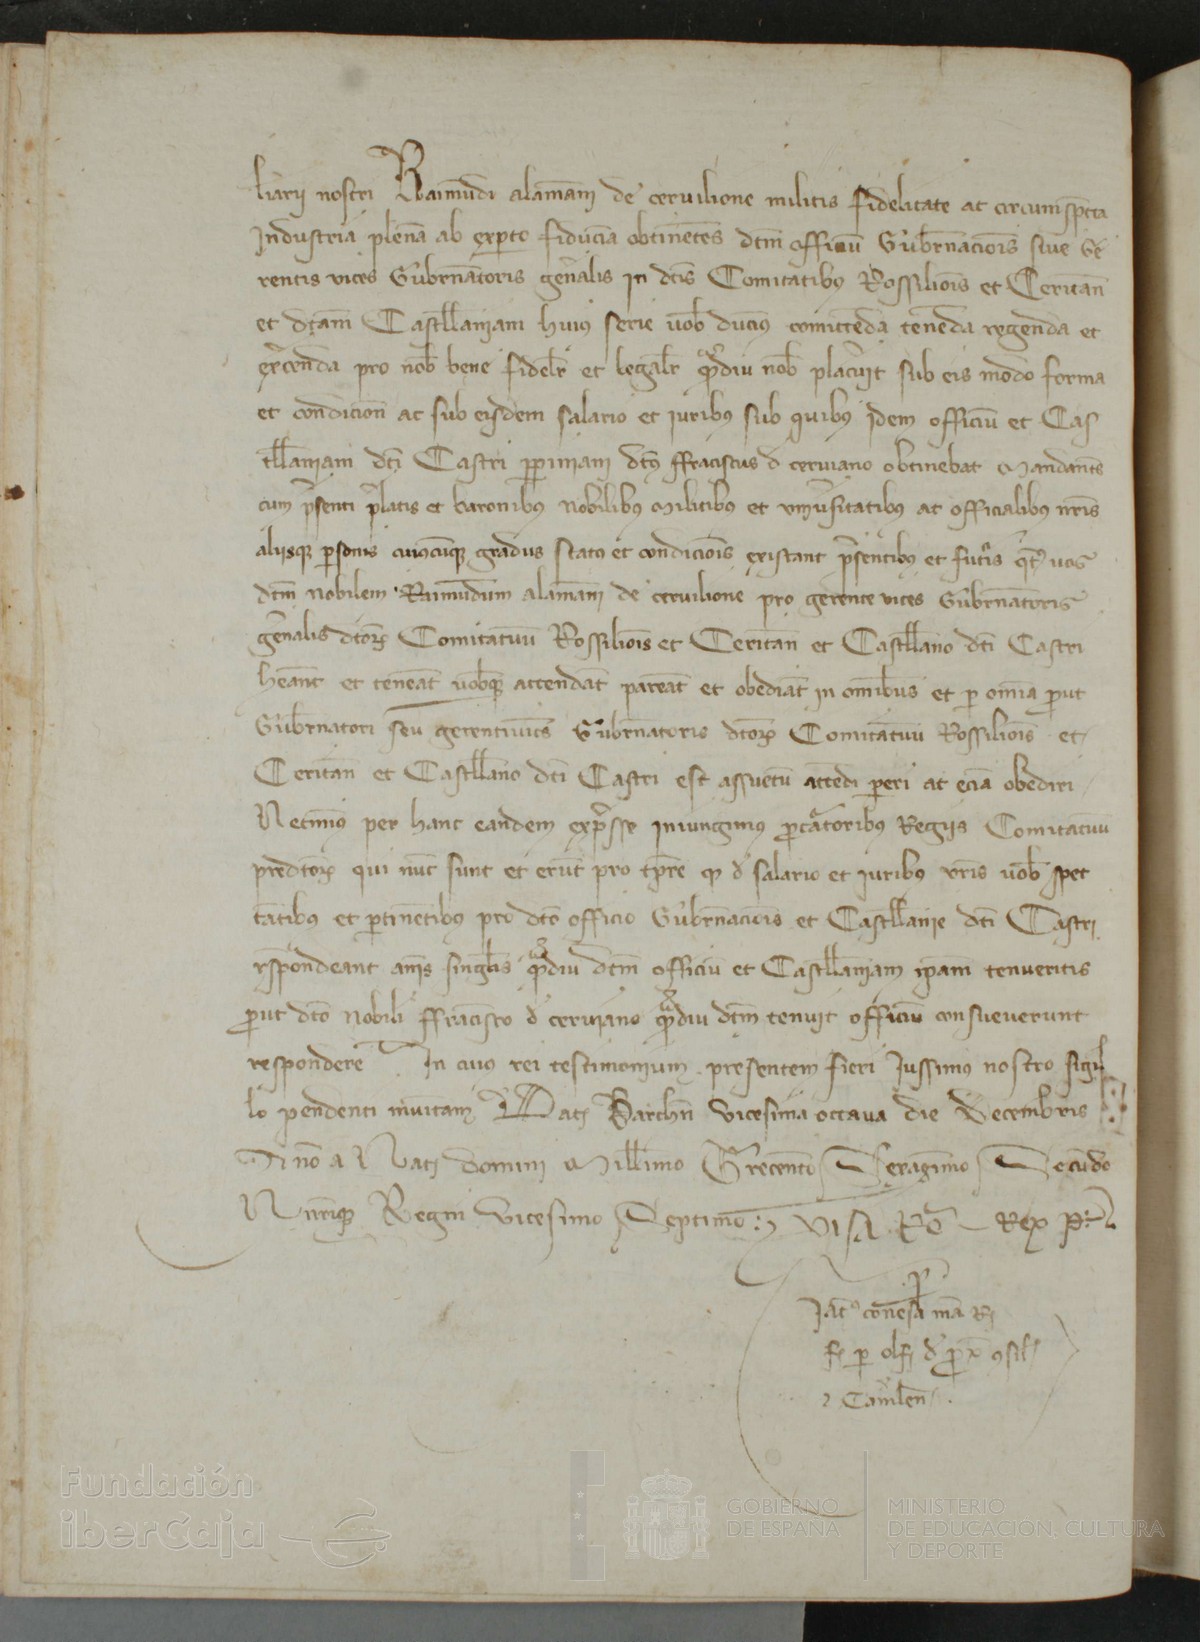 liarii nostri Raimundi alamanni de cervilione militis fidelitate ac circumspecta
Industria plenam ab experto fiduciam obtinentes dictum officium Gubernacionis sive Ge
rentis vices Gubernatoris generalis in dictis Comitatibus Rossilionis et Ceritan
et dictam Castellaniam huius serie vobis ducimus comittenda tenenda regenda et
exercenda pro nobis bene fideliter et legaliter quamdiu nobis placuerit sub eis modo forma
et condicion ac sub eisdem salario et iuribus sub quibus idem officium et Cas
tellaniam dicti Castri perpiniani dictus ffraciscus de cerviano obtinebat Mandantes
cum presenti prelatis et baronibus nobilibus militibus et universitatibus ac officialibus nostris
aliisque personis cuiuscumque gradus status et condicionis existant presentibus et futuris quatenus vos
dictum nobilem Raimundum alamanni de cervilione pro gerente vices Gubernatoris
generalis dictorum Comitatuum Rossilionis et Ceritan et Castellano dicti Castri
heant et teneant vobisque attendant pareant et obediant in omnibus et per omnia prout
Gubernatori seu gerentivices Gubernatoris dictorum Comitatuum Rossilionis et
Ceritan et Castellano dicti Castri est assuetum attedi pareri ac eciam obediri
Necminus per hanc eandem expresse iniungimus procuratoribus Regiis Comitatuum
predictorum qui nunc sunt et erunt pro tempore quod de salario et iuribus vestris vobis spec
tantibus et pertinentibus pro dicto officio Gubernacionis et Castellanie dicti Castri
respondeant annis singulis quamdiu dictum officium et Castellaniam ipsam tenueritis
prout dicto nobili ffrancisco de cerviano quamdiu dictum tenuit officium consueverunt
respondere In cuius rei testimonium presentem fieri Jussimus nostro sigil
lo pendenti munitam Dat Barchn vicesima octava die Decembris
Anno a Nat domini Millimo Trecento Sexagimo Secudo
Nostrique Regni vicesimo Septimo VISA Ro Rex P
Jac conesa
Camlen
Fundación
iberCaja
GOBIERNO
DE ESPAÑA
MINISTERIO
DE EDUCACIÓN, CULTURA
Y DEPORTE